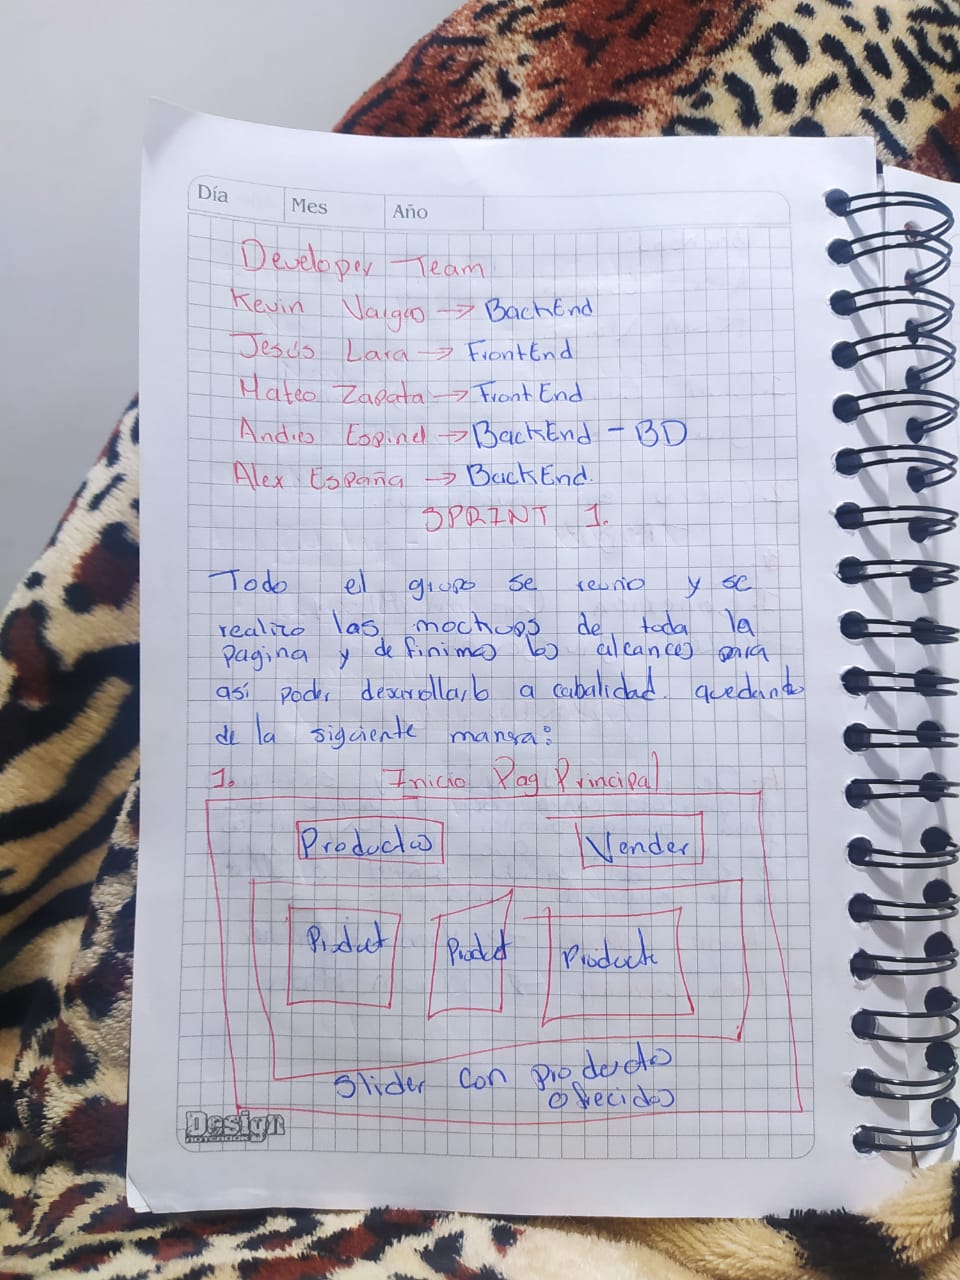 Día
Mes
Año
Developer Team
Kevin Vargas → BackEnd
Jesús Lara → FrontEnd
Mateo Zapata → Front End
Andres Espinel → BackEnd - BD
Alex España → BackEnd.
SPRINT 1.
Todo el grupo se reunio y se
realizo las mockups de toda la
pagina y definimos los alcances para
así poder desarrollarlo a cabalidad. quedando
de la siguiente manera:
1. Inicio Pag Principal
Productos
Vender
Product
Product
Producto
Slider con productos
ofrecidos
Design
NOTEBOOK